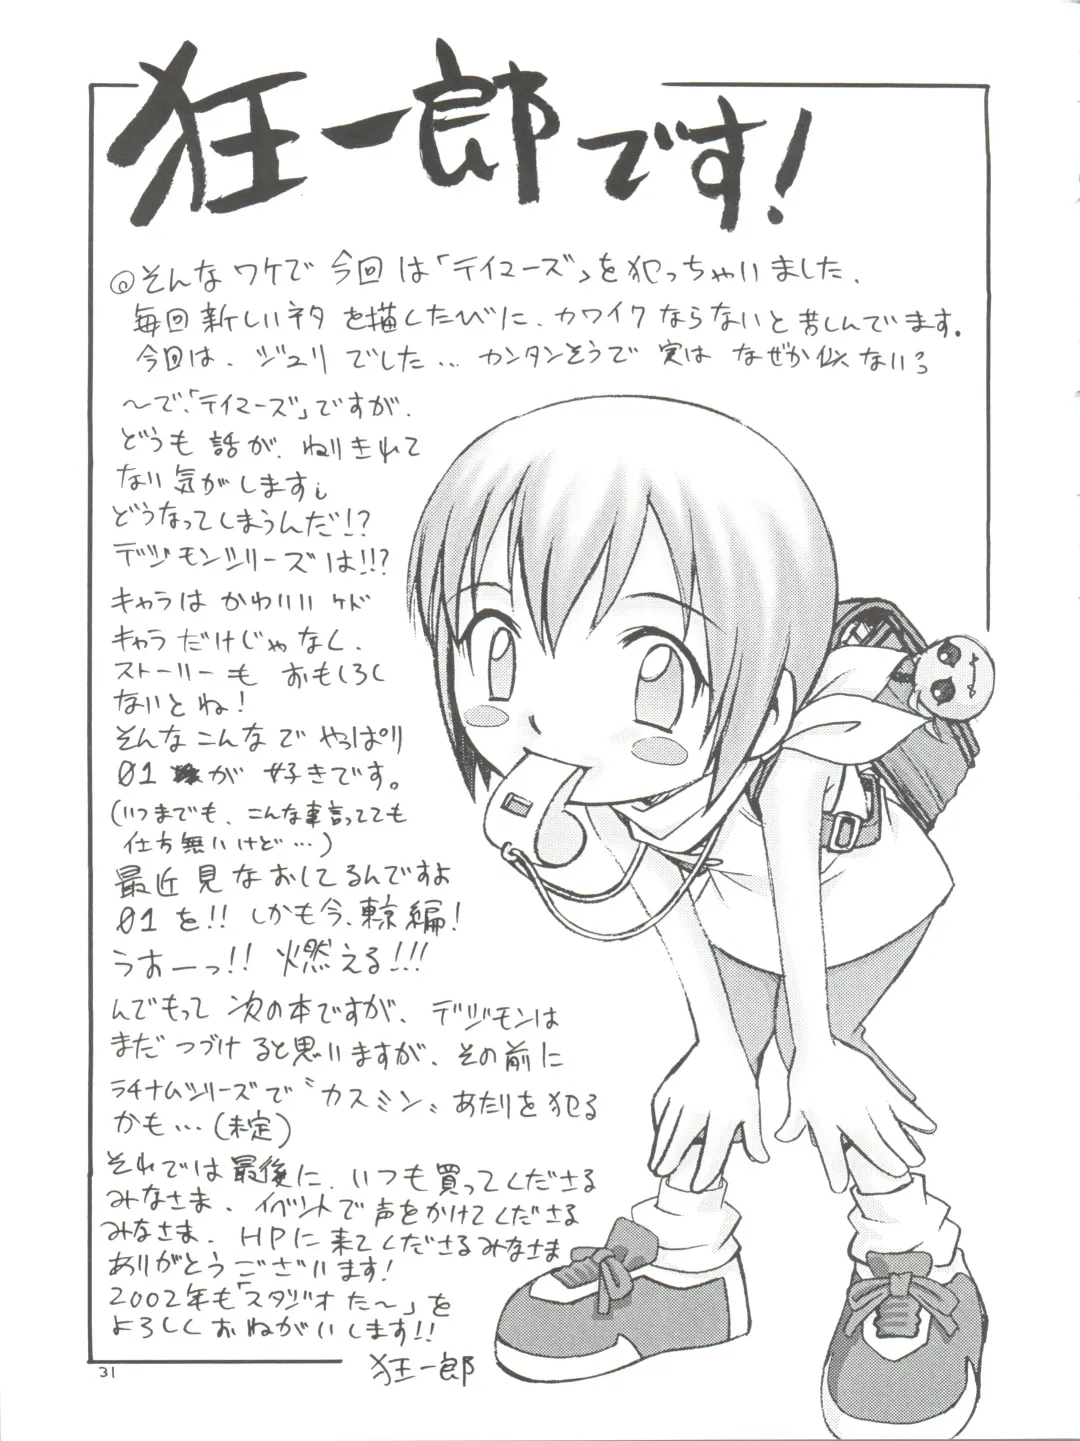 狂一郎です!
@そんなワケで今回は「テイマーズ」を犯っちゃいました.
毎回新しいネタを描くたびに、カワイクならないと苦しんでます。
今回は、ジュリでした... カンタンそうで実はなぜか似ない3
〜で、「テイマーズ」ですが、
どうも話が、ねりきれて
ない気がします
どうなってしまうんだ!?
デジモンシリーズは!!?
キャラはかわいいケド
キャラだけじゃなく、
ストーリーもおもしろく
ないとね!
そんなこんなでやっぱり
01が好きです。
(いつまでも、こんな事言ってても
仕方無いけど...)
最近見なおしてるんですよ
01を!! しかも今、東京編!
うおーっ!! 燃える!!!
んでもって次の本ですが、デジモンは
まだつづけると思いますが、その前に
ラチナムシリーズで〝カスミン〟あたりを犯る
かも...(未定)
それでは最後に、いつも買ってくださる
みなさま、イベントで声をかけてくださる
みなさま、HPに来てくださるみなさま
ありがとうございます!
2002年も「スタジオた〜」を
よろしくおねがいします!!
狂一郎
31